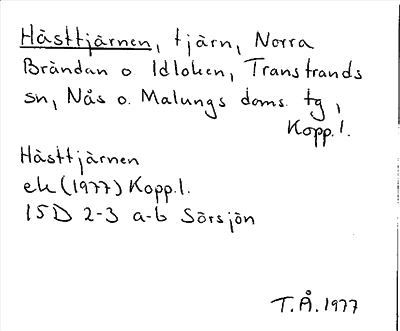 Hästtjärnen, tjärn, Norra
Brändan o Idloken, Transtrands
sn, Nås o. Malungs doms. tg,
Kopp. l.
Hästtjärnen
ek (1977) Kopp. l.
15D 2-3 a-b Sörsjön
T.Å. 1977